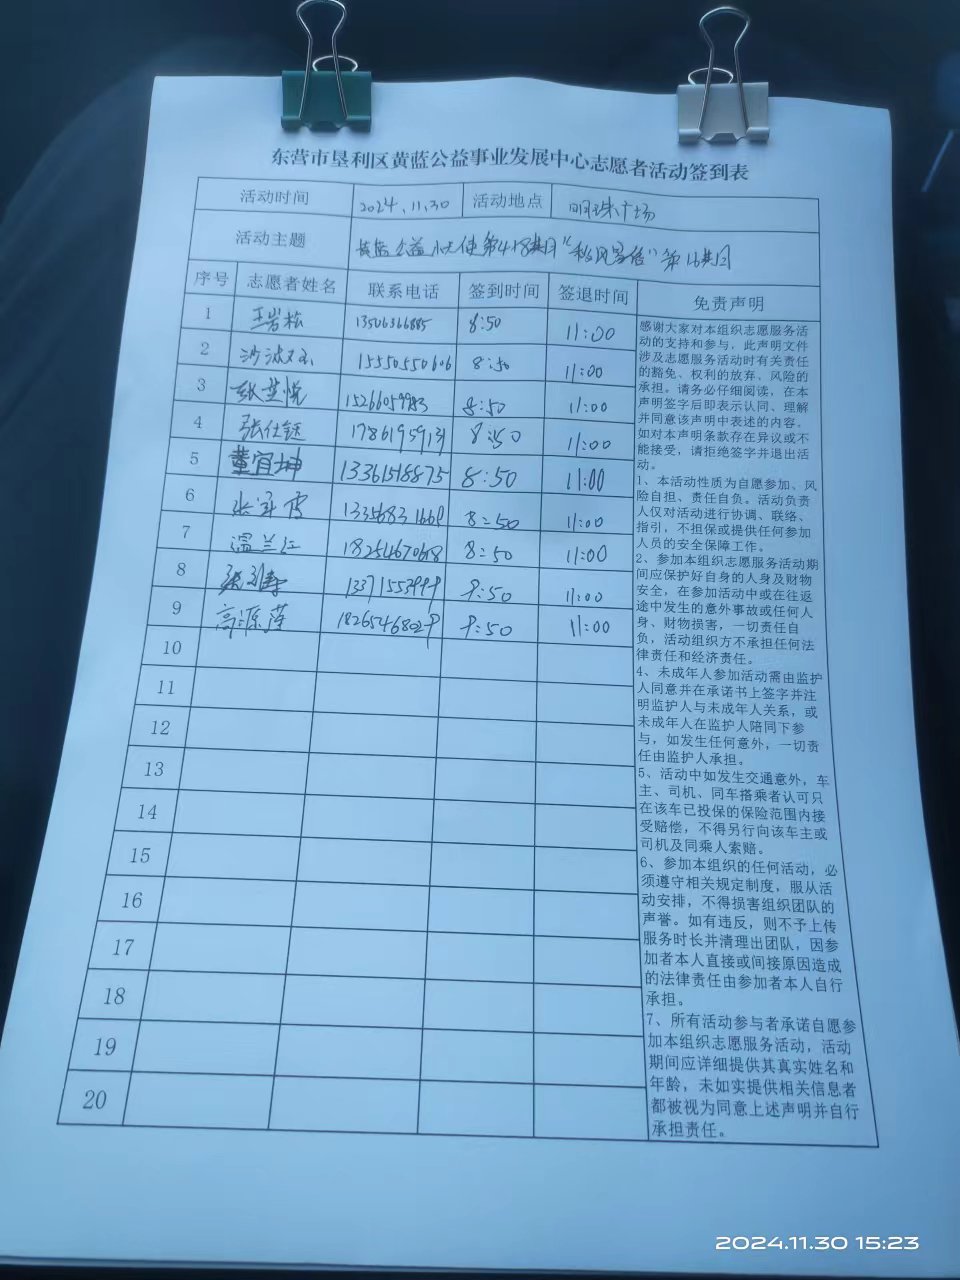 东营市垦利区黄蓝公益事业发展中心志愿者活动签到表
活动时间 2024.11.30 活动地点 明珠广场
活动主题 黄蓝公益小天使第418期 第16期
序号 志愿者姓名 联系电话 签到时间 签退时间 免责声明
1 王岩松 13506366885 8:50 11:00
2 15550550606 8:50 11:00
3 张芸悦 8:50 11:00
4 张仕钰 17861959131 8:50 11:00
5 董宜坤 13361518875 8:50 11:00
6 8:50 11:00
7 温兰江 8:50 11:00
8 9:50 11:00
9 高源莲 9:50 11:00
10
11
12
13
14
15
16
17
18
19
20
感谢大家对本组织志愿服务活
动的支持和参与，此声明文件
涉及志愿服务活动时有关责任
的豁免、权利的放弃、风险的
承担。请务必仔细阅读，在本
声明签字后即表示认同、理解
并同意该声明中表述的内容。
如对本声明条款存在异议或不
能接受，请拒绝签字并退出活
动。
1、本活动性质为自愿参加、风
险自担、责任自负。活动负责
人仅对活动进行协调、联络、
指引，不担保或提供任何参加
人员的安全保障工作。
2、参加本组织志愿服务活动期
间应保护好自身的人身及财物
安全，在参加活动中或在往返
途中发生的意外事故或任何人
身、财物损害，一切责任自
负，活动组织方不承担任何法
律责任和经济责任。
4、未成年人参加活动需由监护
人同意并在承诺书上签字并注
明监护人与未成年人关系，或
未成年人在监护人陪同下参
与，如发生任何意外，一切责
任由监护人承担。
5、活动中如发生交通意外，车
主、司机、同车搭乘者认可只
在该车已投保的保险范围内接
受赔偿，不得另行向该车主或
司机及同乘人索赔。
6、参加本组织的任何活动，必
须遵守相关规定制度，服从活
动安排，不得损害组织团队的
声誉。如有违反，则不予上传
服务时长并清理出团队，因参
加者本人直接或间接原因造成
的法律责任由参加者本人自行
承担。
7、所有活动参与者承诺自愿参
加本组织志愿服务活动，活动
期间应详细提供其真实姓名和
年龄，未如实提供相关信息者
都被视为同意上述声明并自行
承担责任。
2024.11.30 15:23